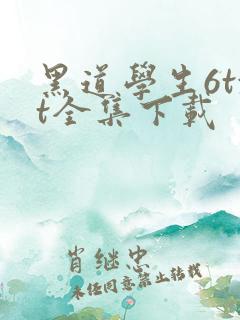 黑道學生6tx
t全集下載
肖继忠
未经同意禁止转载